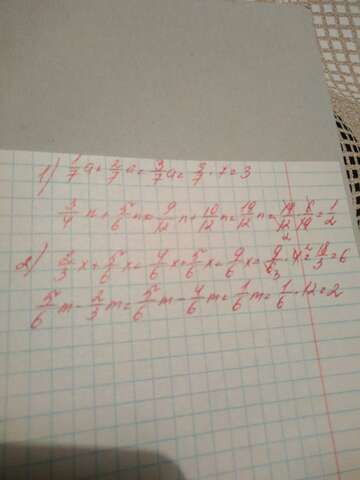 1) 1/7 a + 2/7 a = 3/7 a = 3/7 · 7 = 3
3/4 n + 5/6 n = 9/12 n + 10/12 n = 19/12 n = 19/12 · 6/19 = 1/2
2) 2/3 x + 5/6 x = 4/6 x + 5/6 x = 9/6 x = 9/6 · 4 = 18/3 = 6
5/6 m - 2/3 m = 5/6 m - 4/6 m = 1/6 m = 1/6 · 12 = 2